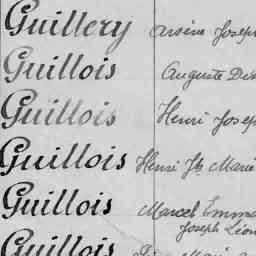 Guillery Arsène Joseph
Guillois Auguste
Guillois Henri Joseph
Guillois Henri Jh Marie
Guillois Marcel Emma
Joseph Léon
Guillois